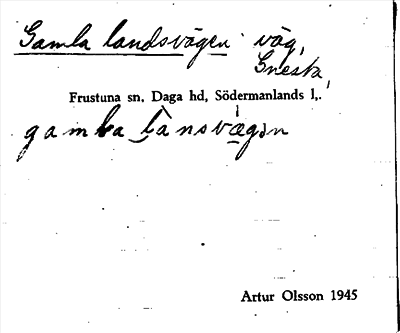 Gamla landsvägen väg,
Gnesta,
Frustuna sn, Daga hd, Södermanlands l,.
gamla lánsvægən
Artur Olsson 1945